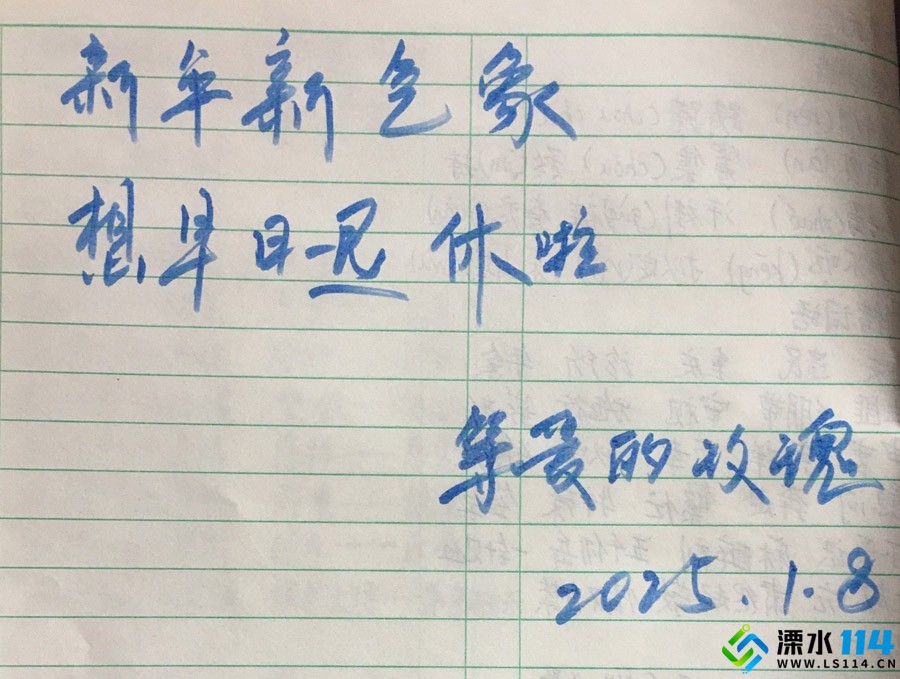 新年新气象
想早日见休啦
等爱的玫瑰
2025.1.8
溧水114
WWW.LS114.CN